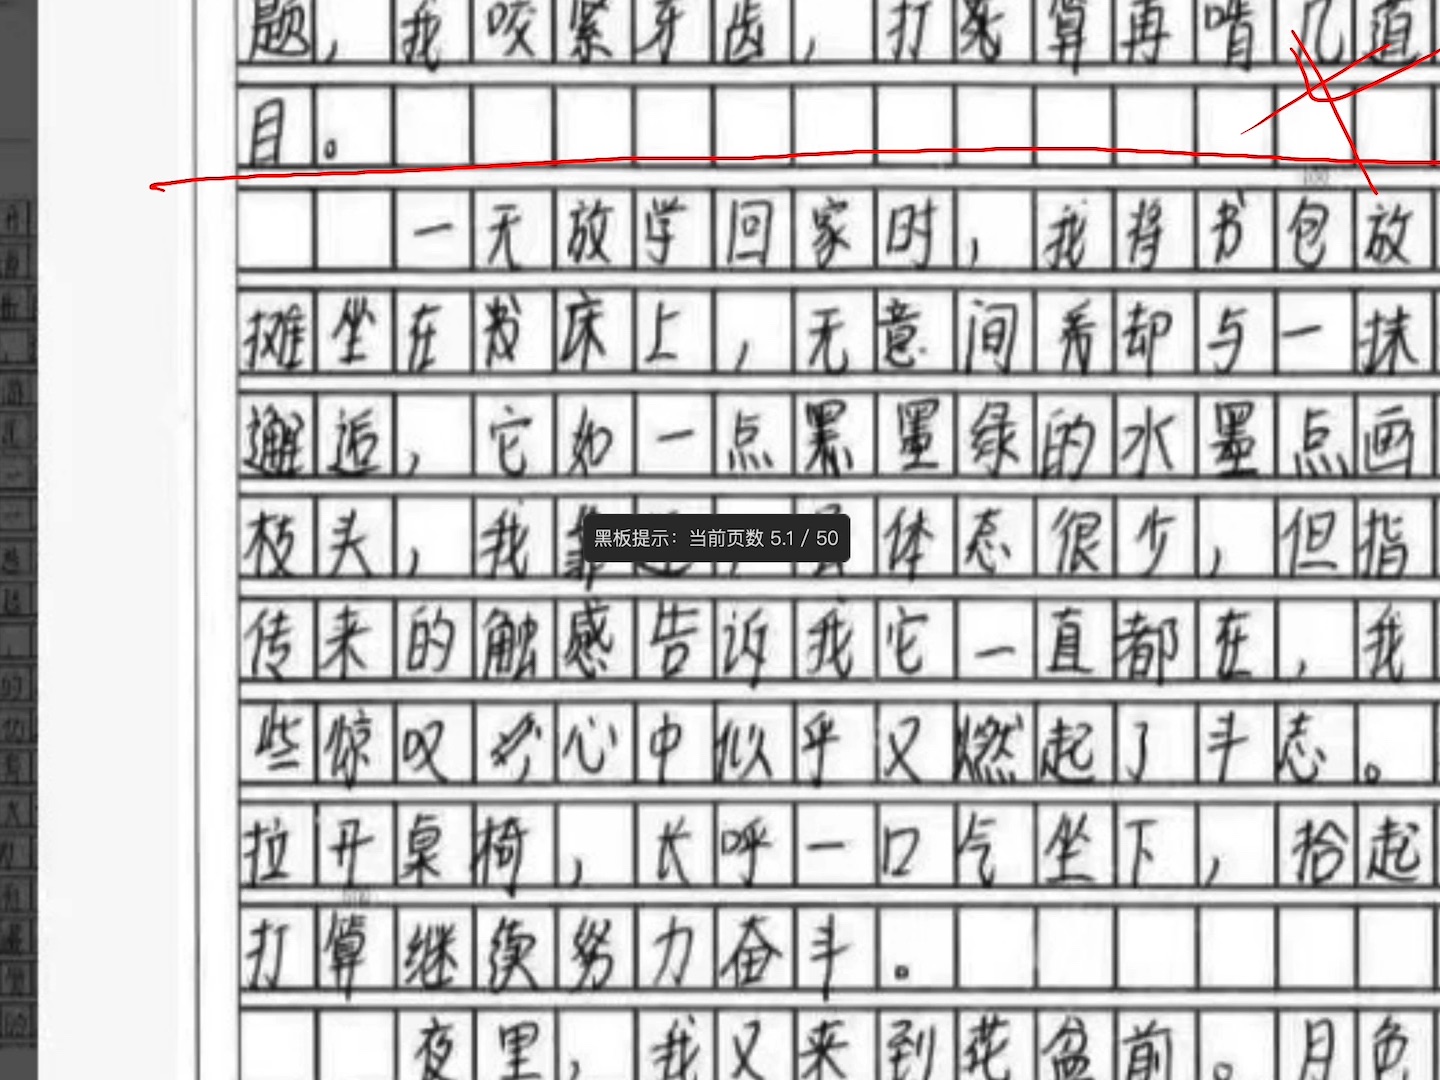 题，我咬紧牙齿，打死算再啃几道
目。
一天放学回家时，我将书包放
摊坐在沙床上，无意间看却与一抹
邂逅，它如一点黑墨绿的水墨点画
枝头，我 体态很少，但指
黑板提示：当前页数 5.1 / 50
传来的触感告诉我它一直都在，我
些惊叹 心中似乎又燃起了斗志。
拉开桌椅，长呼一口气坐下，拾起
打算继续努力奋斗。
夜里，我又来到花盆前。月色